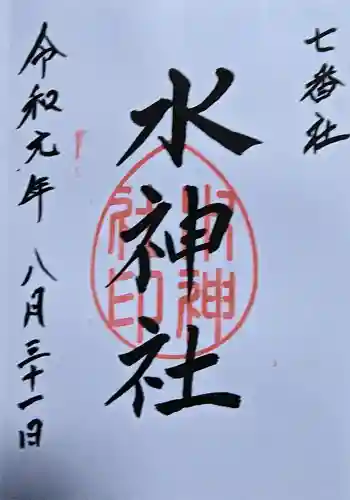 七番社
水神社
水神社印
令和元年 八月三十一日